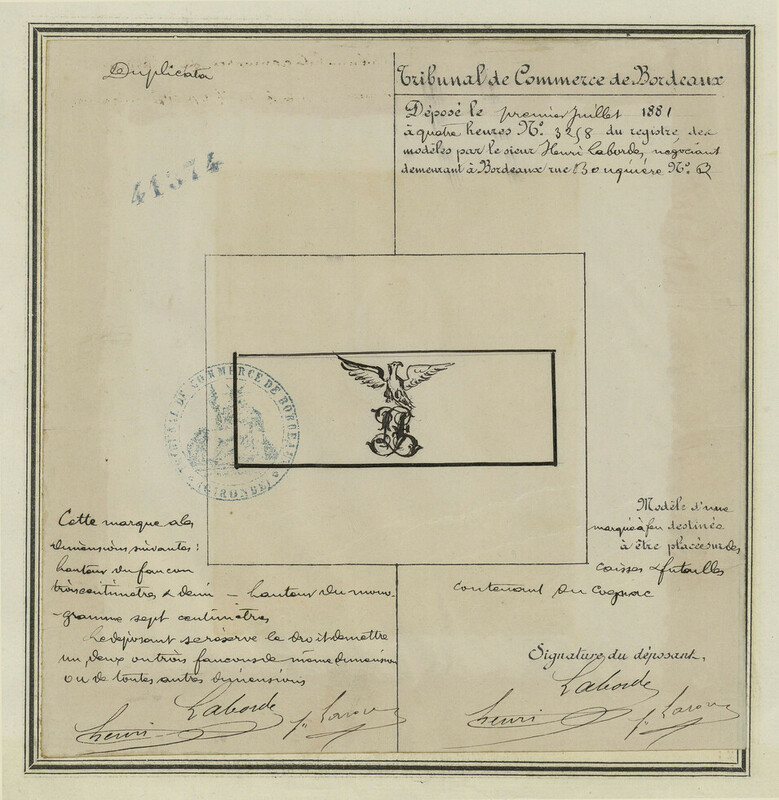 Duplicata
41374
Tribunal de Commerce de Bordeaux
Déposé le premier Juillet 1881
à quatre heures N° 3258 du registre des
modèles par le sieur Henri Laborde, négociant
demeurant à Bordeaux rue Bouquière N°
TRIBUNAL DE COMMERCE DE BORDEAUX
(GIRONDE)
Cette marque a les
dimensions suivantes :
hauteur du faucon
trois centimètres & demi – hauteur du mono-
-gramme sept centimètres
Le déposant se réserve le droit de mettre
un, deux ou trois faucons de même dimension
ou de toutes autres dimensions
henri Laborde
Modèle d'une
marque à feu destinée
à être placée sur des
caisses & futailles
contenant du Cognac
Signature du déposant,
henri Laborde